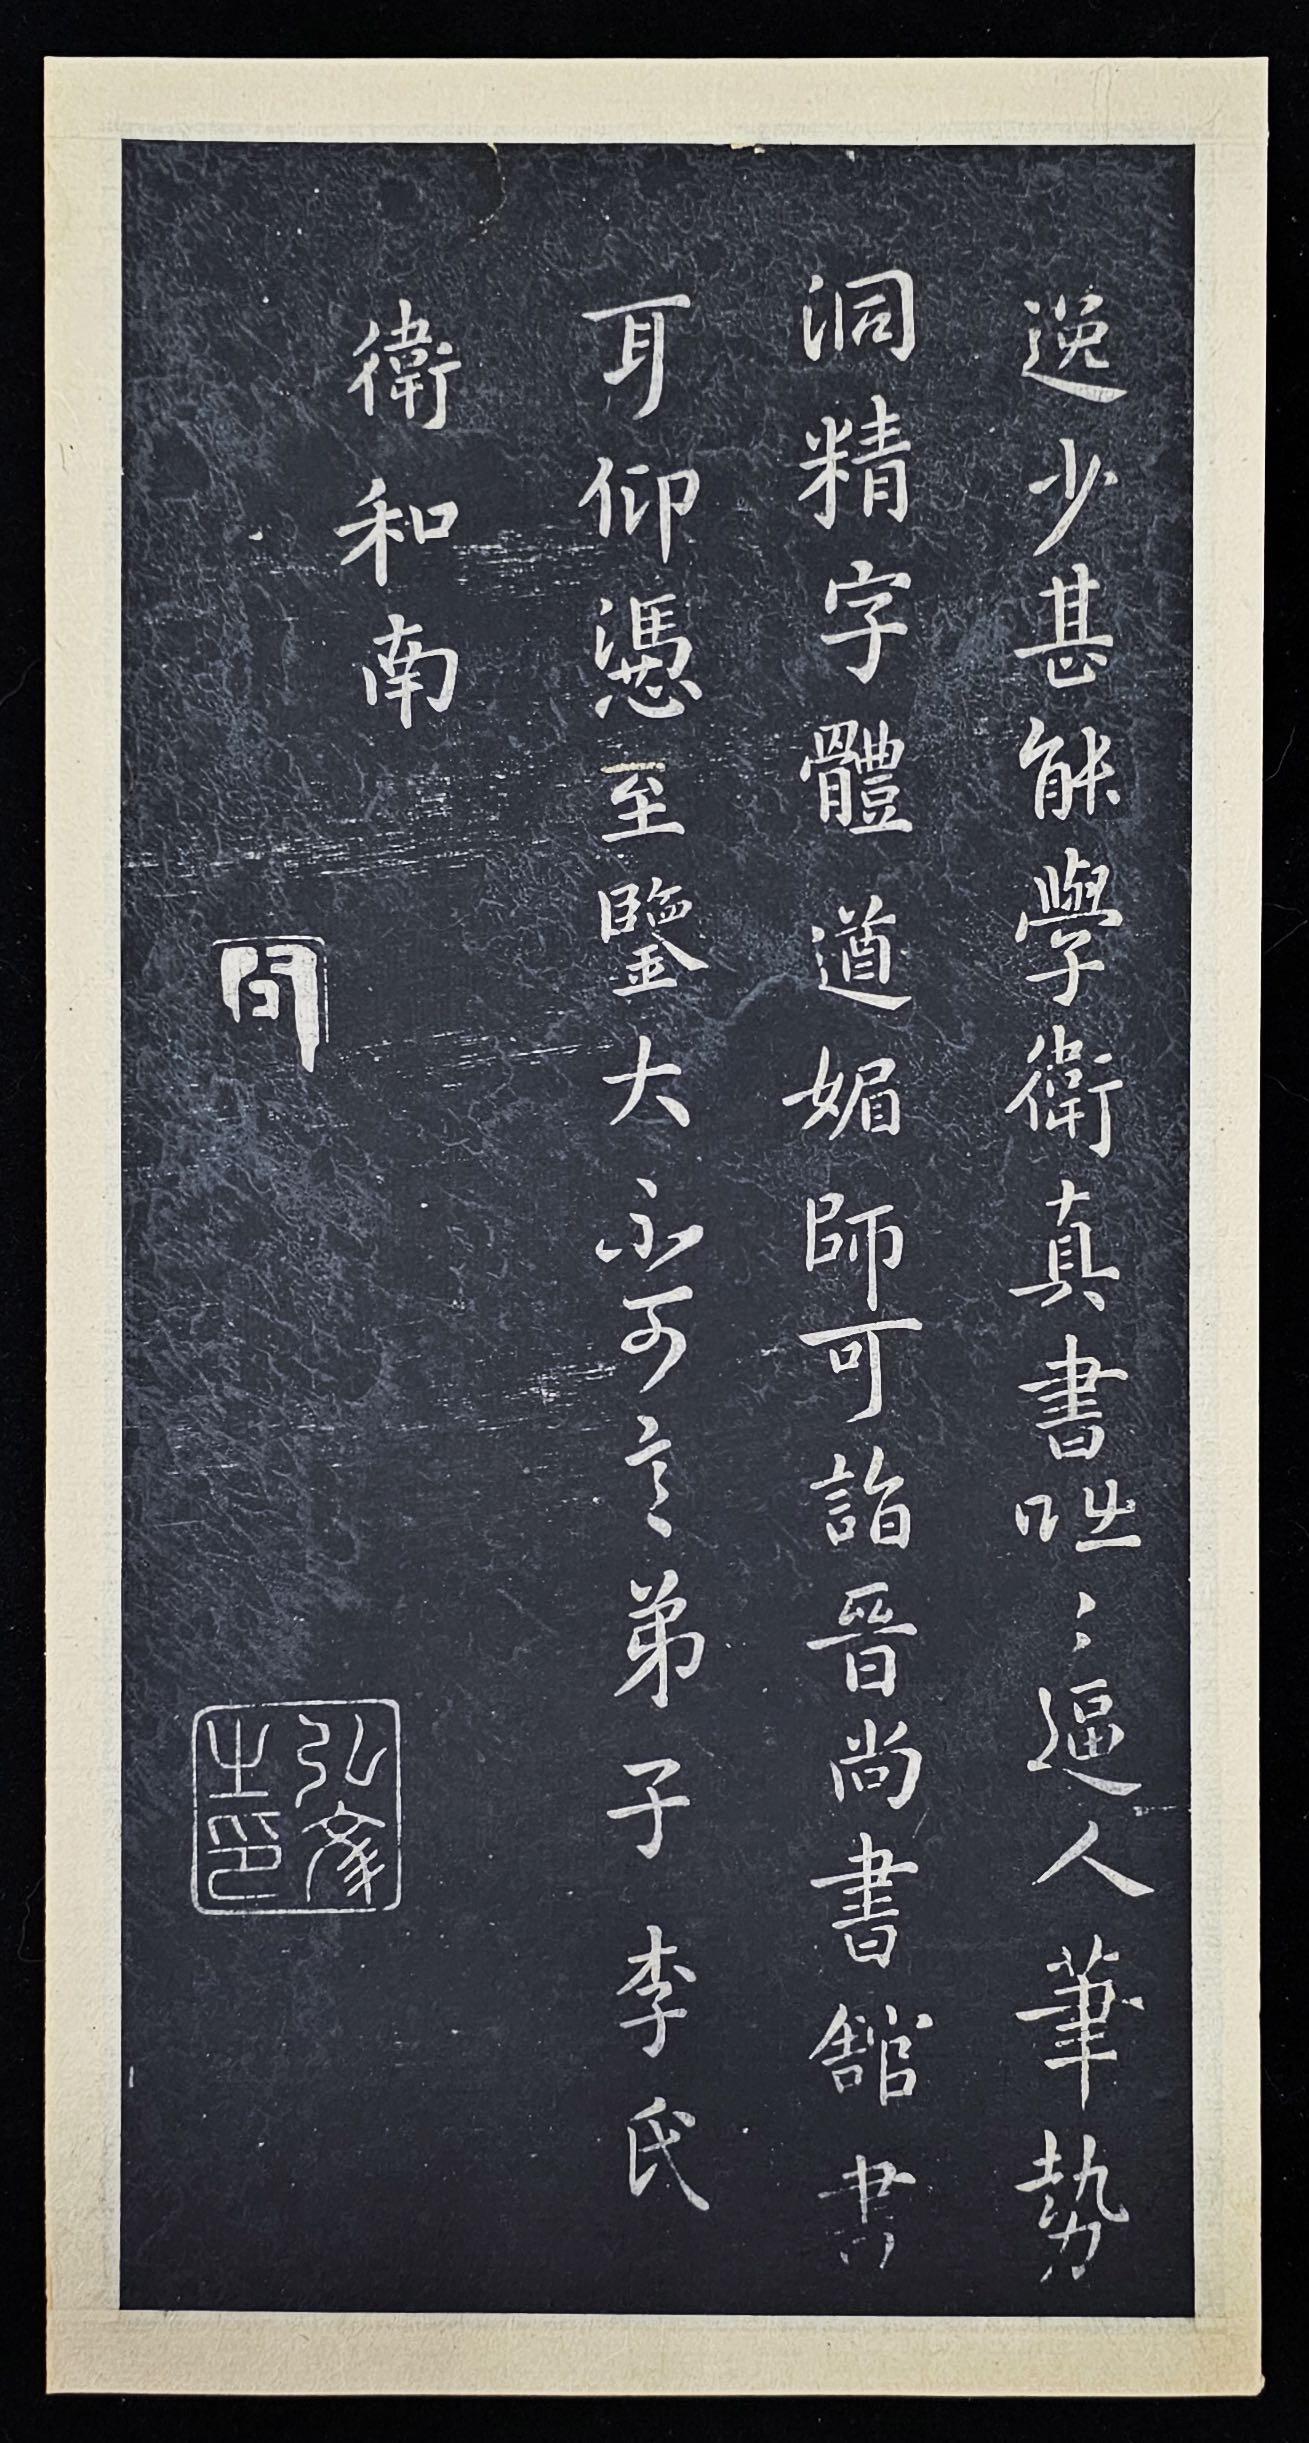 逸少甚能學衛真書咄〻逼人筆勢
洞精字體遒媚師可詣晉尚書館書
耳仰憑至鑒大不可言弟子李氏
衛和南